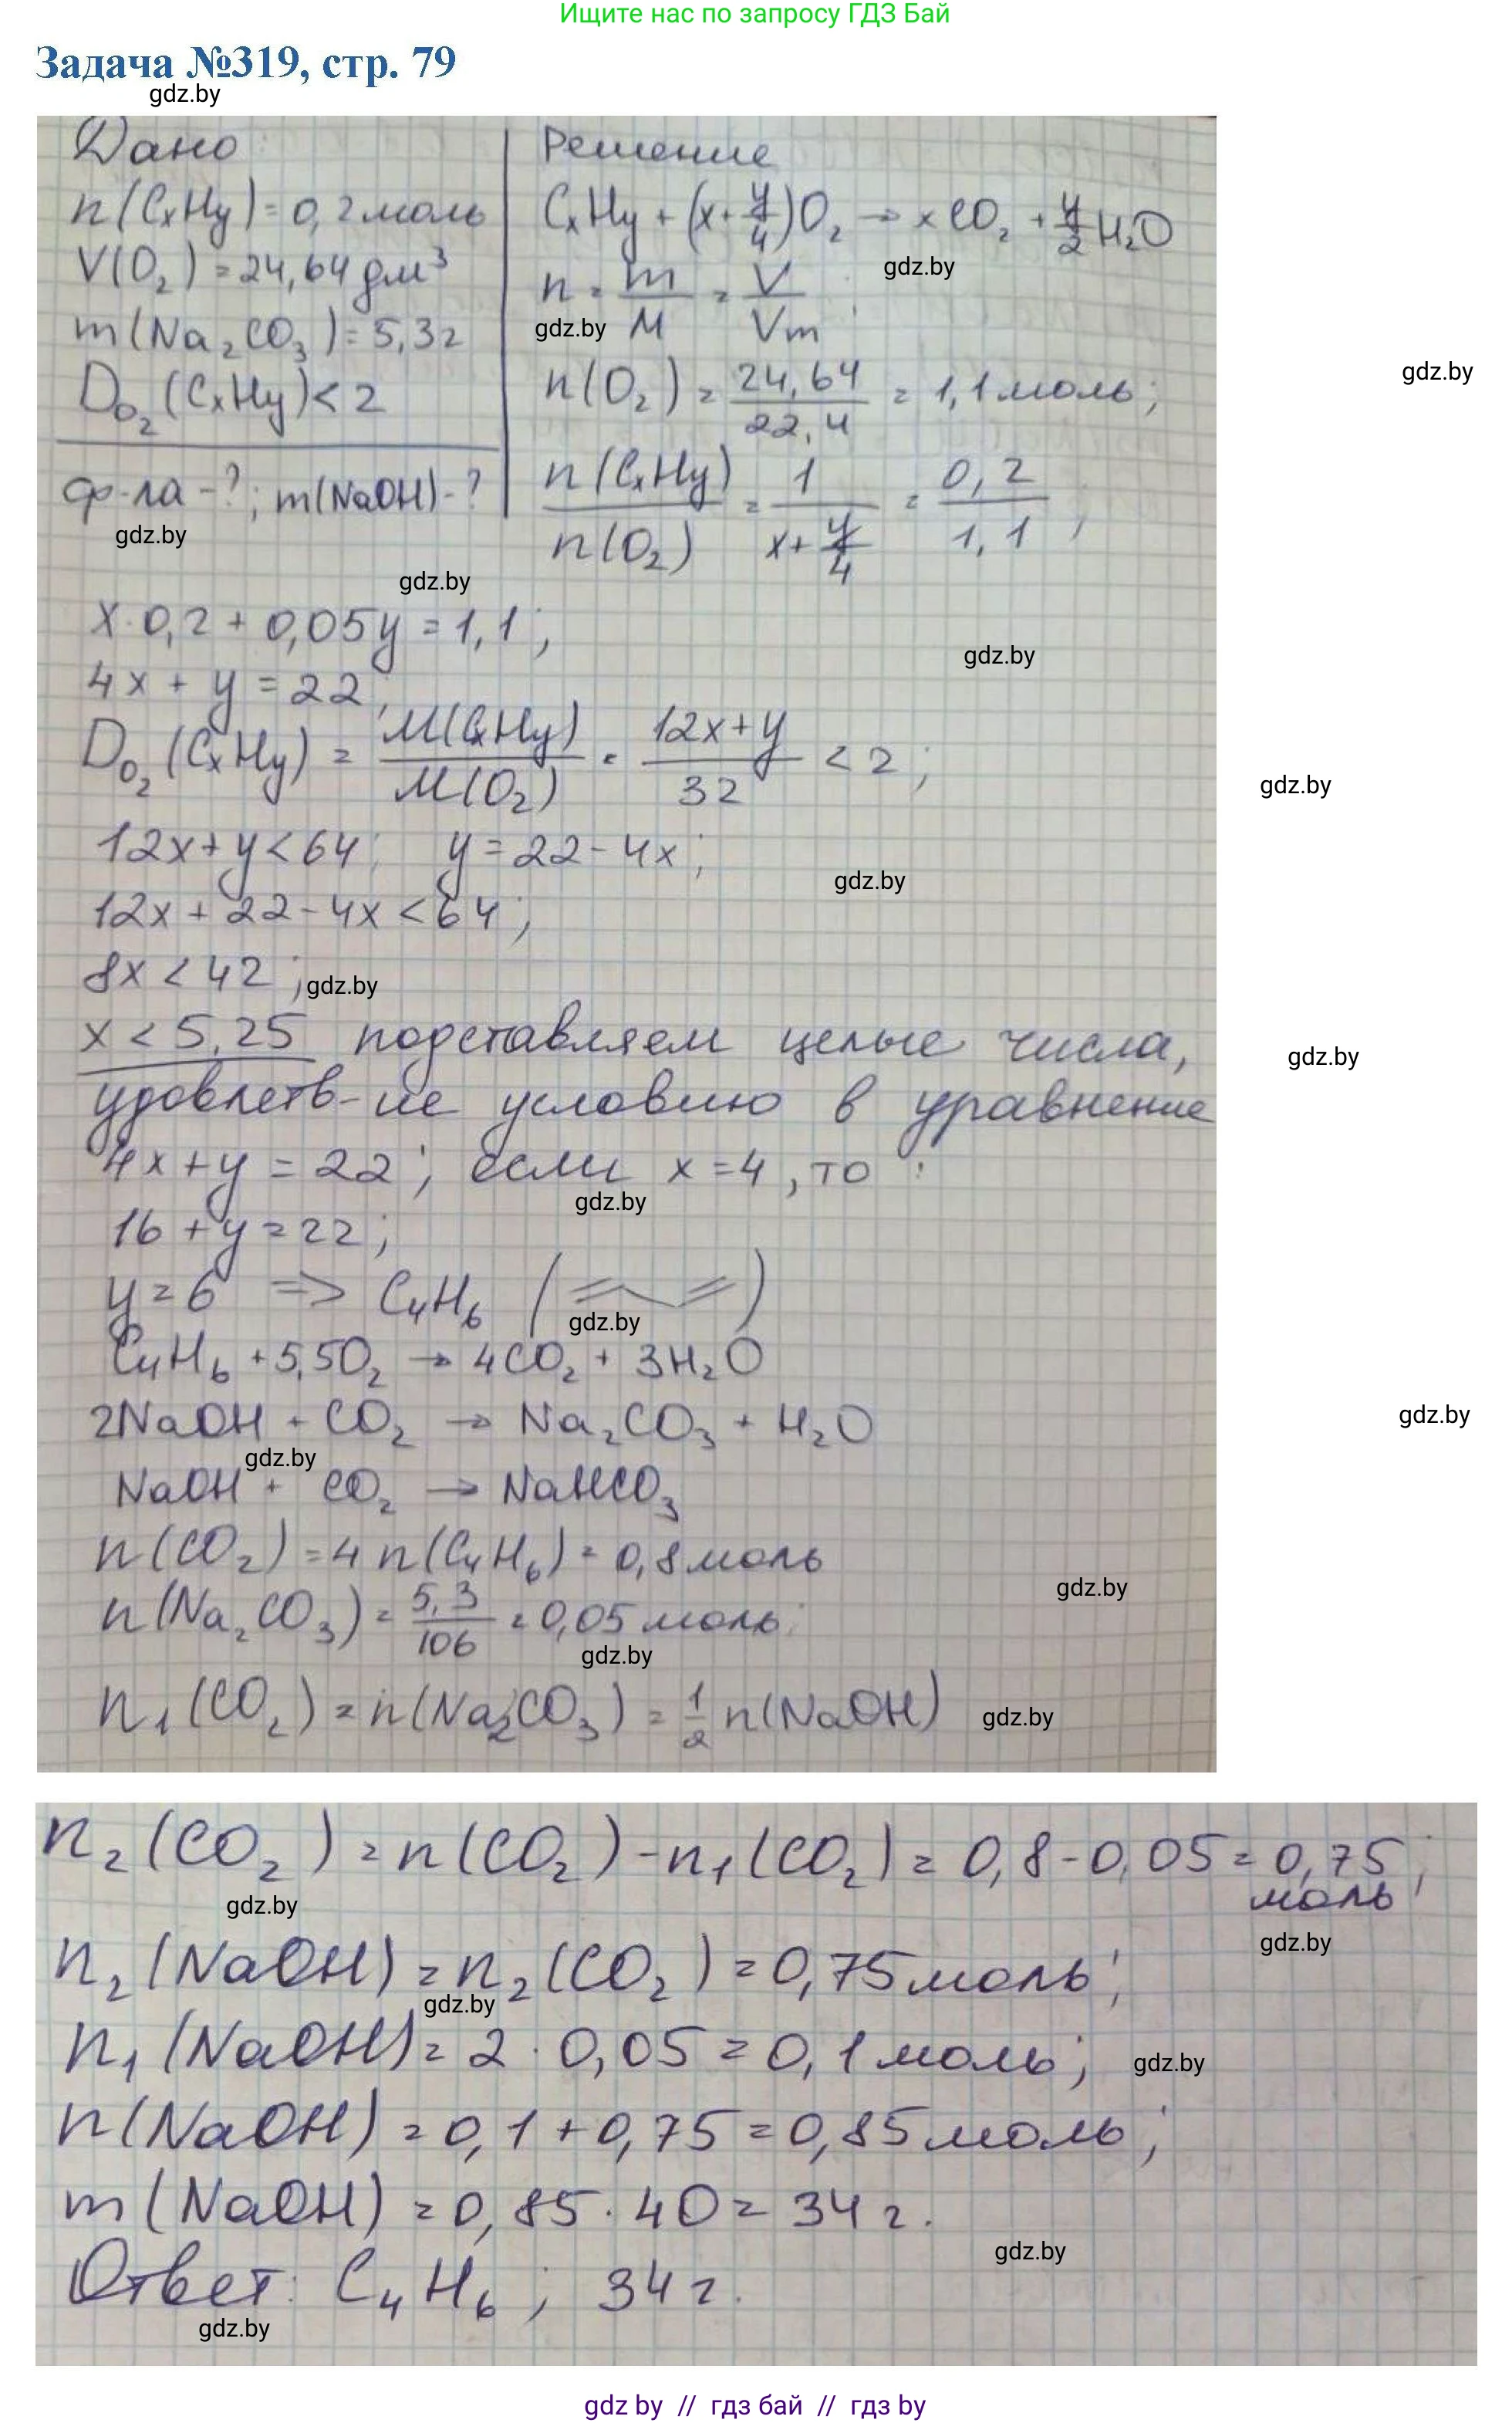 Ищите нас по запросу ГДЗ Бай
Задача №319, стр. 79
gdz.by
Дано
n(CxHy)=0,2 моль
V(O₂)=24,64 дм³
m(Na₂CO₃)=5,3г
D_O₂(CxHy)<2
ф-ла-?; m(NaOH)-?
gdz.by
Решение
CxHy + (x+y/4)O₂ → xCO₂ + y/2 H₂O
gdz.by
n = m/M = V/Vm;
gdz.by
n(O₂) = 24,64/22,4 = 1,1 моль;
gdz.by
n(CxHy)/n(O₂) = 1/(x+y/4) = 0,2/1,1;
gdz.by
x·0,2 + 0,05y = 1,1;
gdz.by
4x + y = 22;
D_O₂(CxHy) = M(CxHy)/M(O₂) = (12x+y)/32 < 2;
gdz.by
12x+y<64; y=22-4x;
gdz.by
12x+22-4x<64;
8x<42;
gdz.by
x<5,25 подставляем целые числа,
gdz.by
удовлетв-ие условию в уравнение
4x+y=22; если x=4, то:
gdz.by
16+y=22;
y=6 => C₄H₆ ( )
gdz.by
C₄H₆ + 5,5O₂ → 4CO₂ + 3H₂O
2NaOH + CO₂ → Na₂CO₃ + H₂O
gdz.by
gdz.by
NaOH + CO₂ → NaHCO₃
n(CO₂)=4n(C₄H₆)=0,8 моль
gdz.by
n(Na₂CO₃)=5,3/106=0,05 моль;
gdz.by
n₁(CO₂)=n(Na₂CO₃)=1/2 n(NaOH)
gdz.by
n₂(CO₂)=n(CO₂)-n₁(CO₂)=0,8-0,05=0,75 моль;
gdz.by
gdz.by
n₂(NaOH)=n₂(CO₂)=0,75 моль;
gdz.by
n₁(NaOH)=2·0,05=0,1 моль;
gdz.by
n(NaOH)=0,1+0,75=0,85 моль;
m(NaOH)=0,85·40=34 г.
gdz.by
Ответ: C₄H₆; 34 г.
gdz.by
gdz by // гдз бай // гдз by